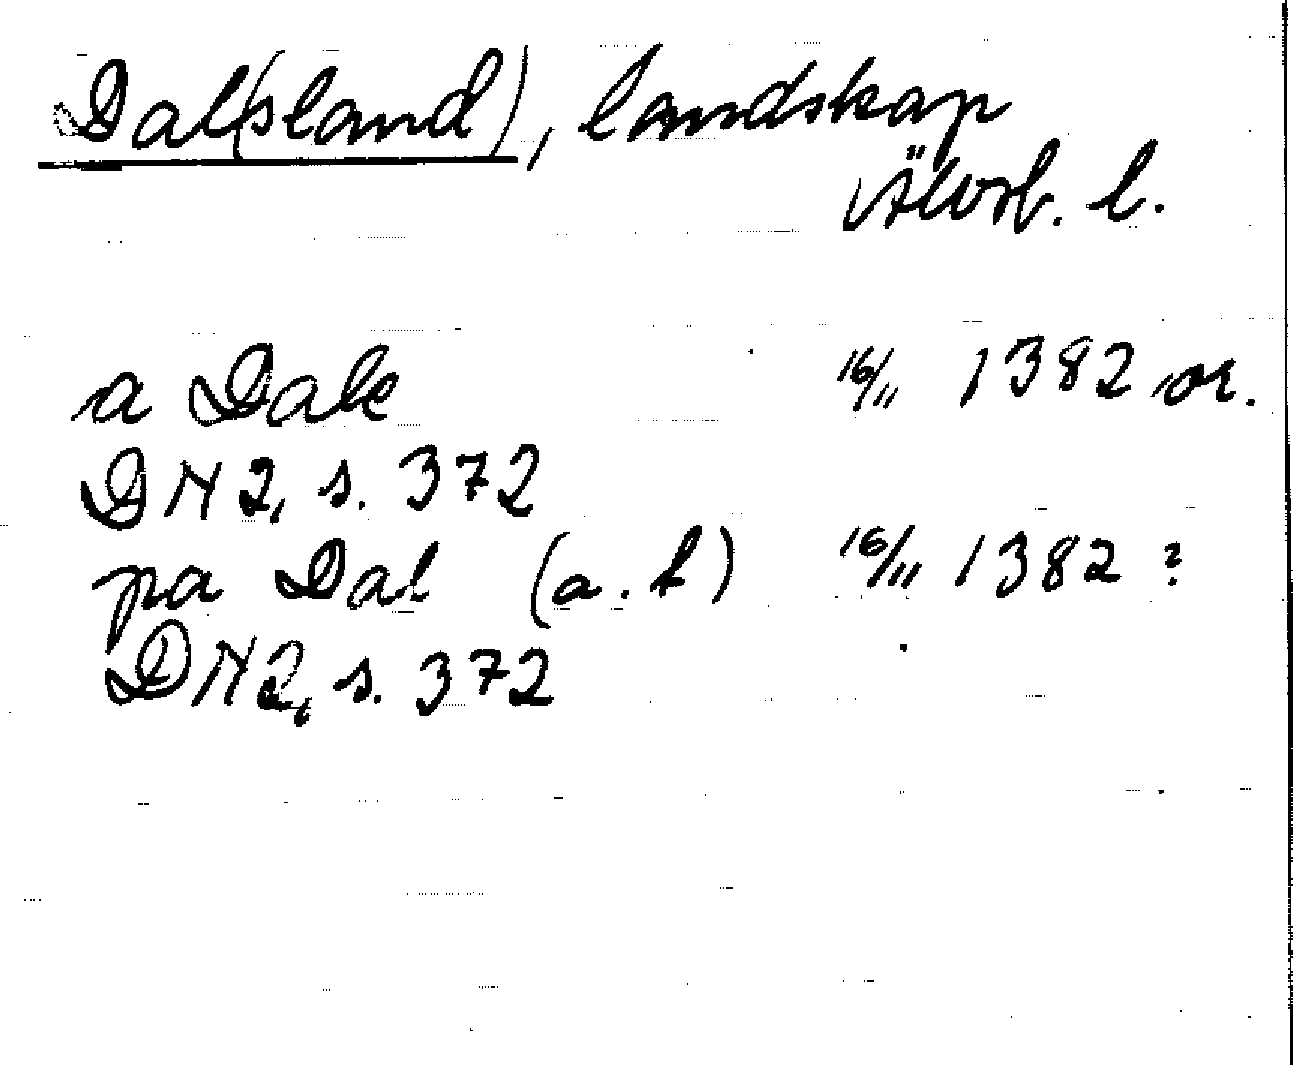 Dal(sland), landskap
Älvsb. l.
a Dale 16/11 1382 or.
DN 2, s. 372
pa Dal (a. t) 16/11 1382 ?
DN 2, s. 372